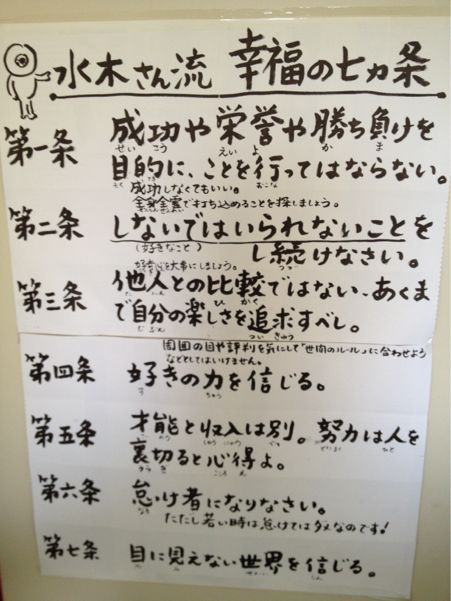 水木さん流 幸福の七カ条
第一条 成功や栄誉や勝ち負けを
目的に、ことを行ってはならない。
成功しなくてもいい。
全身全霊で打ち込めることを探しましょう。
第二条 しないではいられないことを
(好きなこと) し続けなさい。
好奇心を大事にしましょう。
第三条 他人との比較ではない、あくま
で自分の楽しさを追求すべし。
周囲の目や評判を気にして「世間のルール」に合わせよう
などとしてはいけません。
第四条 好きの力を信じる。
第五条 才能と収入は別。努力は人を
裏切ると心得よ。
第六条 怠け者になりなさい。
ただし若い時は怠けてはダメなのです!
第七条 目に見えない世界を信じる。